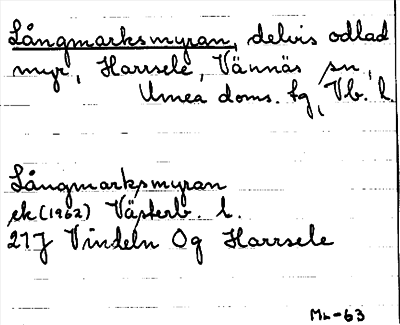 Långmarksmyran, delvis odlad
myr, Harrsele, Vännäs sn,
Umeå doms. tg, Vb. l.
Långmarksmyran
ek (1962) Västerb. l.
21J Vindeln Og Harrsele